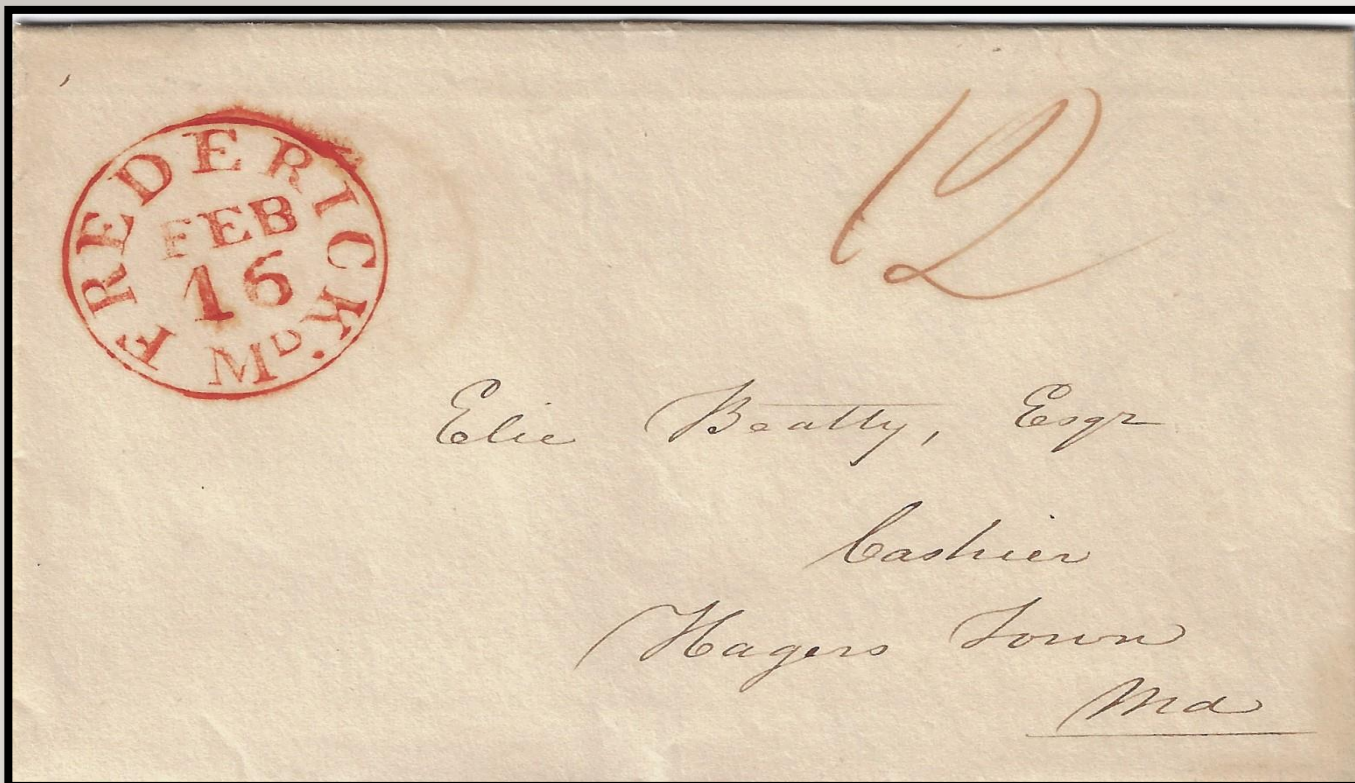 FREDERICK. MD
FEB
16
12
Elie Beatty, Esqr
Cashier
Hagers Town
Md